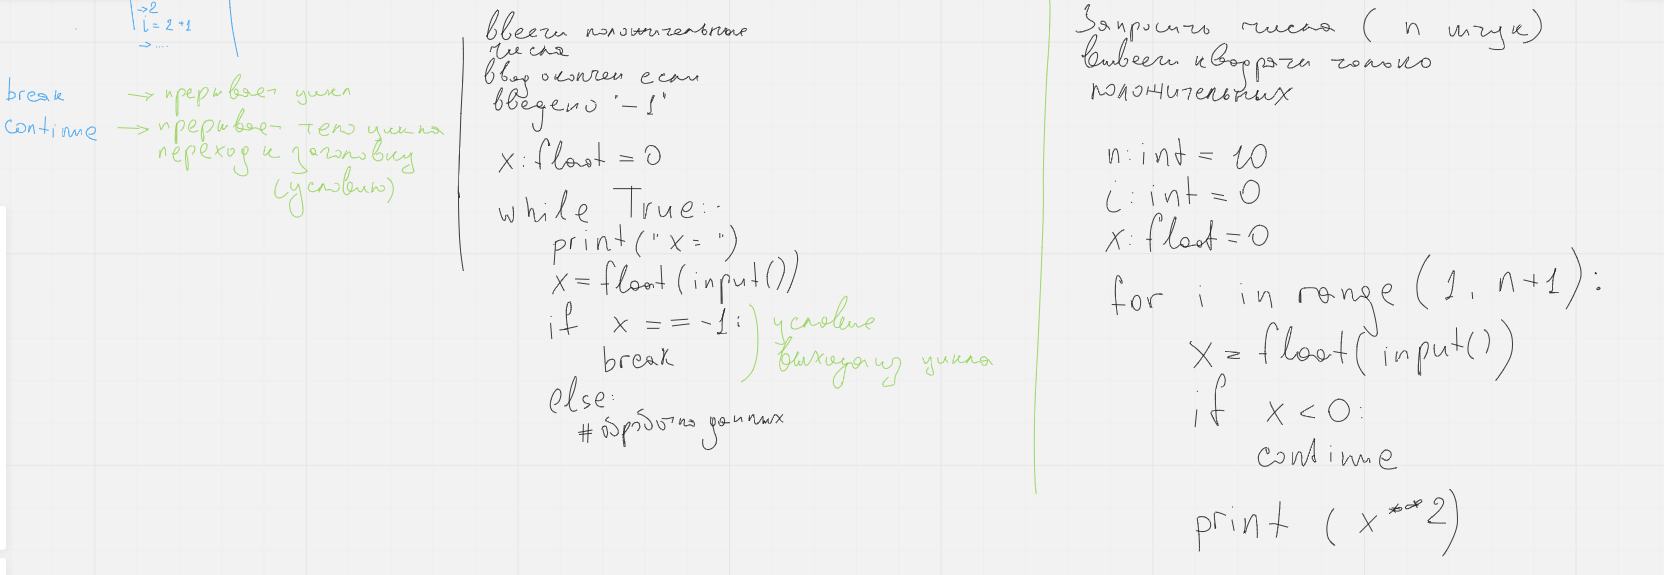 →2
i = 2+1
→ ....
break → прерывает цикл
continue → прерывает тело цикла
переход к заголовку
(условию)
ввести положительные
числа
ввод окончен если
введено "-1"
x: float = 0
while True:
print("x = ")
x = float(input())
if x == -1:
break
условие
выхода из цикла
else:
# обработка данных
Запросить числа ( n штук)
вывести квадраты только
положительных
n: int = 10
i: int = 0
x: float = 0
for i in range (1, n+1):
x = float(input())
if x < 0:
continue
print (x**2)